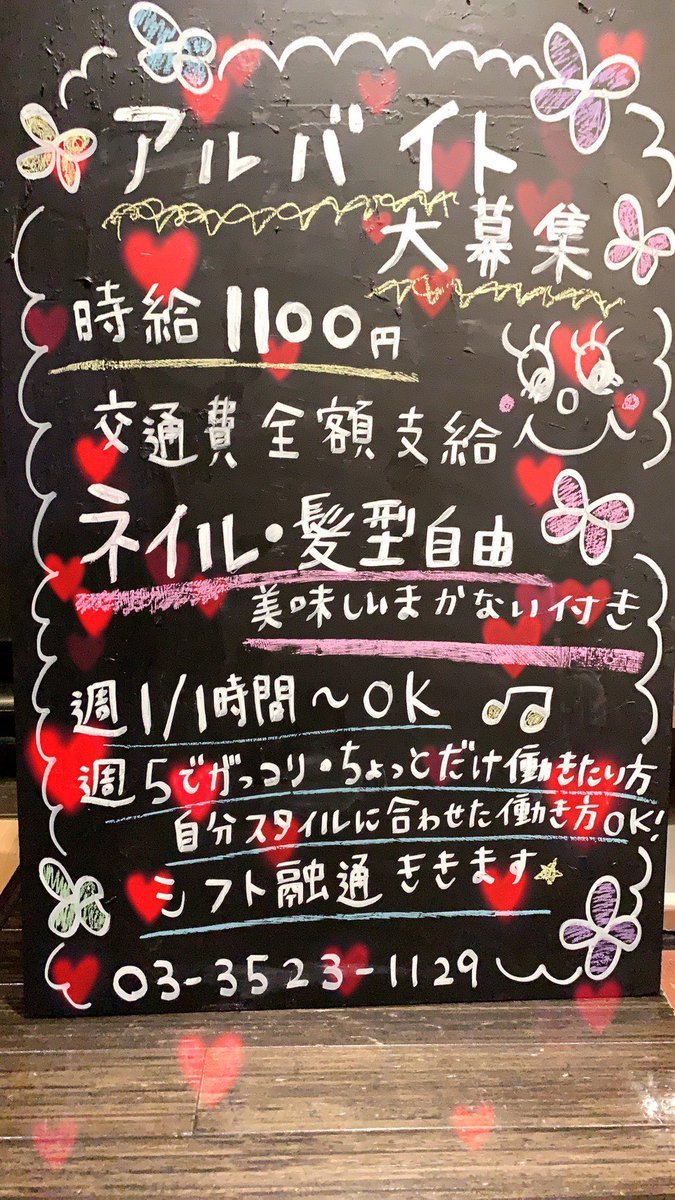 アルバイト
大募集
時給1100円
交通費全額支給
ネイル・髪型自由
美味しいまかない付き
週1/1時間～OK
週5でがっつり・ちょっとだけ働きたい方
自分スタイルに合わせた働き方OK!
シフト融通ききます
03-3523-1129